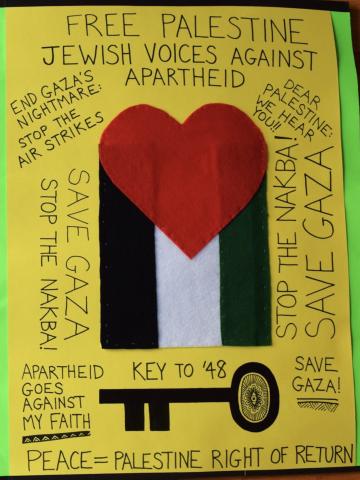 FREE PALESTINE
JEWISH VOICES AGAINST
APARTHEID
END GAZA'S
NIGHTMARE:
STOP THE
AIR STRIKES
DEAR
PALESTINE:
WE HEAR
YOU!!
SAVE GAZA
STOP THE NAKBA!
STOP THE NAKBA!
SAVE GAZA
APARTHEID
GOES
AGAINST
MY FAITH
KEY TO '48
SAVE
GAZA!
PEACE= PALESTINE RIGHT OF RETURN